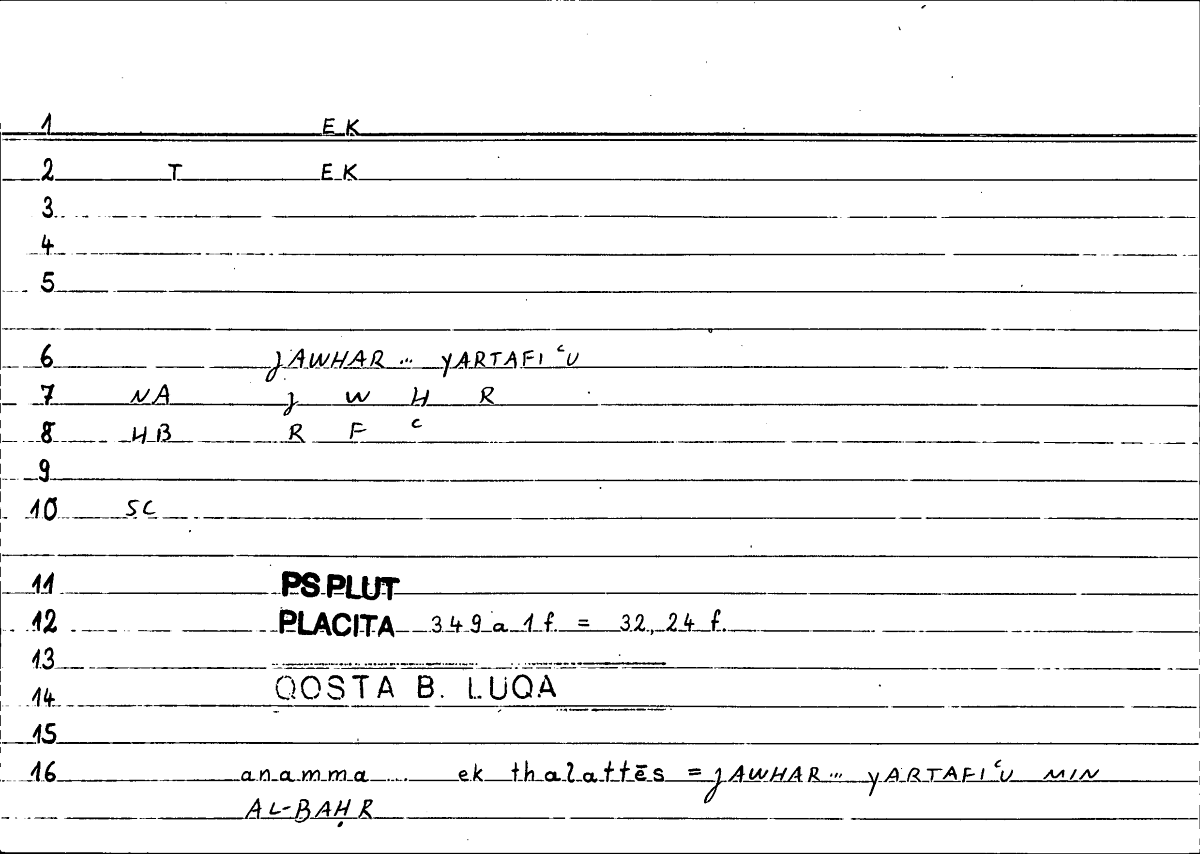 1 EK
2 T EK
3
4
5
6 jAWHAR... yARTAFIᶜU
7 NA j W H R
8 HB R F ᶜ
9
10 SC
11 PS.PLUT
12 PLACITA 349 a 1 f. = 32, 24 f.
13
14 QOSTA B. LUQA
15
16 anamma ... ek thalattēs = jAWHAR... yARTAFIᶜU MIN
AL-BAḤR